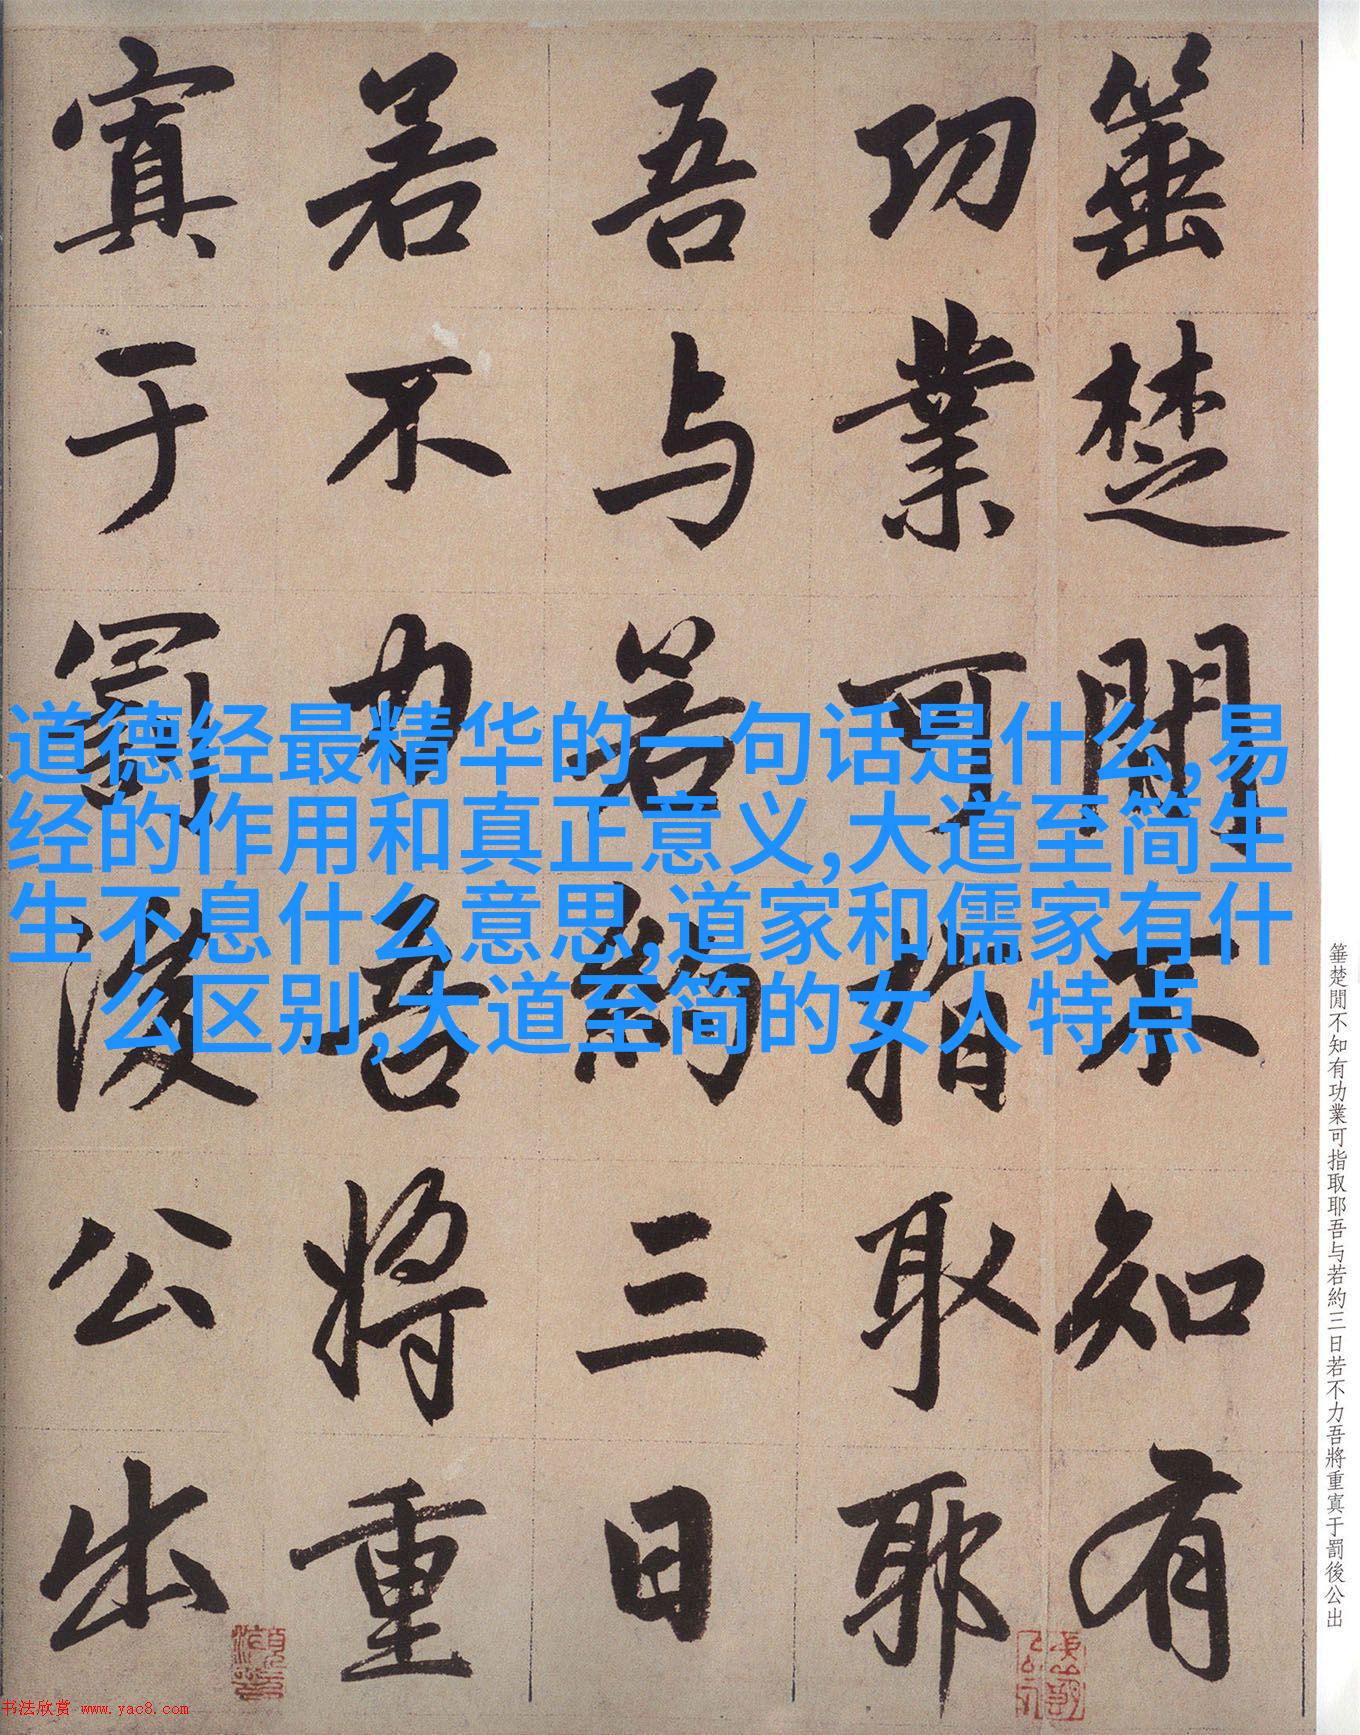 箠楚閒不知有
功業可指取耶
吾与若約三日
若不力吾將重
寘于罰後公出
道德经最精华的一句话是什么,易
经的作用和真正意义,大道至简生
生不息什么意思,道家和儒家有什
么区别,大道至简的女人特点
箠楚閒不知有功業可指取耶吾与若約三日若不力吾將重寘于罰後公出
书法欣赏 www.yac8.com